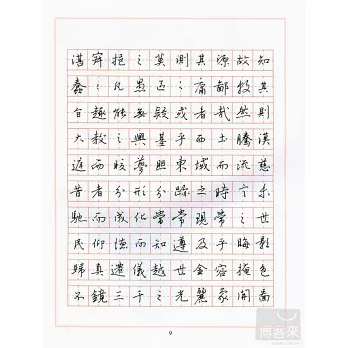 湛寂挹之莫測其源故知
蠢々凡愚區々庸鄙投其
旨趣能無疑惑者哉然則
大教之興基乎西土騰漢
庭而皎夢照東域而流慈
昔者分形分跡之時言未
馳而成化當常現常之世
民仰德而知遵及乎晦影
歸真遷儀越世金容掩色
不鏡三千之光麗象開圖
9
博客來